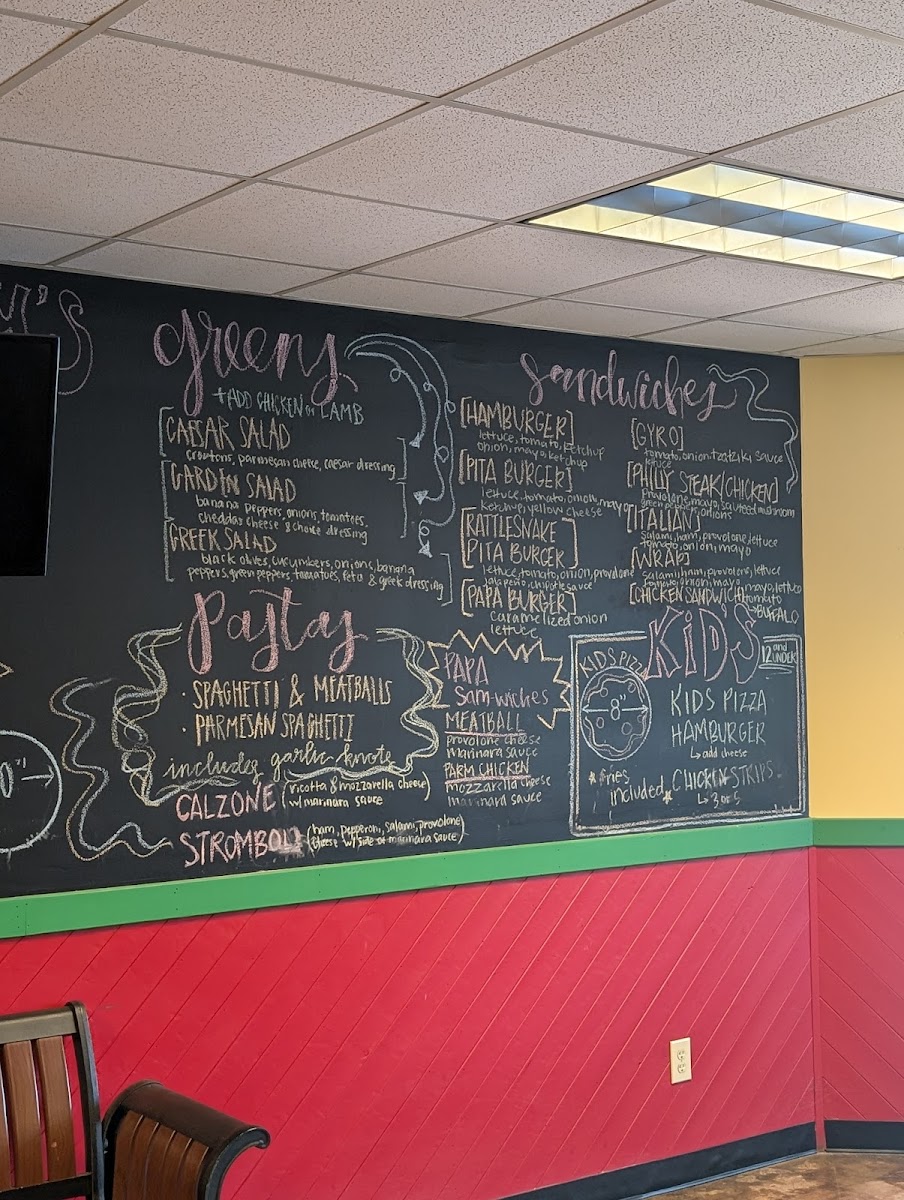 greens
+ADD CHICKEN or LAMB
CAESAR SALAD
croutons, parmesan cheese, caesar dressing
GARDEN SALAD
banana peppers, onions, tomatoes,
cheddar cheese & choice dressing
GREEK SALAD
black olives, cucumbers, onions, banana
peppers, green peppers, tomatoes, feta & greek dressing
Pastas
· SPAGHETTI & MEATBALLS
· PARMESAN SPAGHETTI
includes garlic knots
CALZONE (ricotta & mozzarella cheese)
w/ marinara sauce
STROMBOLI (ham, pepperoni, salami, provolone
cheese w/ side of marinara sauce)
Sandwiches
[HAMBURGER]
lettuce, tomato, ketchup
onion, mayo ketchup
[PITA BURGER]
lettuce, tomato, onion, mayo
ketchup, yellow cheese
[RATTLESNAKE
PITA BURGER]
lettuce, tomato, onion, provolone
jalapeno, chipotle sauce
[PAPA BURGER]
caramelized onion
lettuce
[GYRO]
tomato, onion, tzatziki sauce
lettuce
[PHILLY STEAK/CHICKEN]
provolone, mayo, sauteed mushroom
green peppers, onions
[ITALIAN]
salami, ham, provolone, lettuce
tomato, onion, mayo
[WRAP]
salami, ham, provolone, lettuce
tomato, onion, mayo
[CHICKEN SANDWICH] mayo, lettuce
tomato
BUFFALO
PAPA
Sam-wiches
MEATBALL
provolone cheese
marinara sauce
PARM CHICKEN
mozzarella cheese
marinara sauce
KID'S
12 and
UNDER
KIDS PIZZA
8"
KIDS PIZZA
HAMBURGER
add cheese
CHICKEN STRIPS
3 or 5
* fries
included *
0"
'S